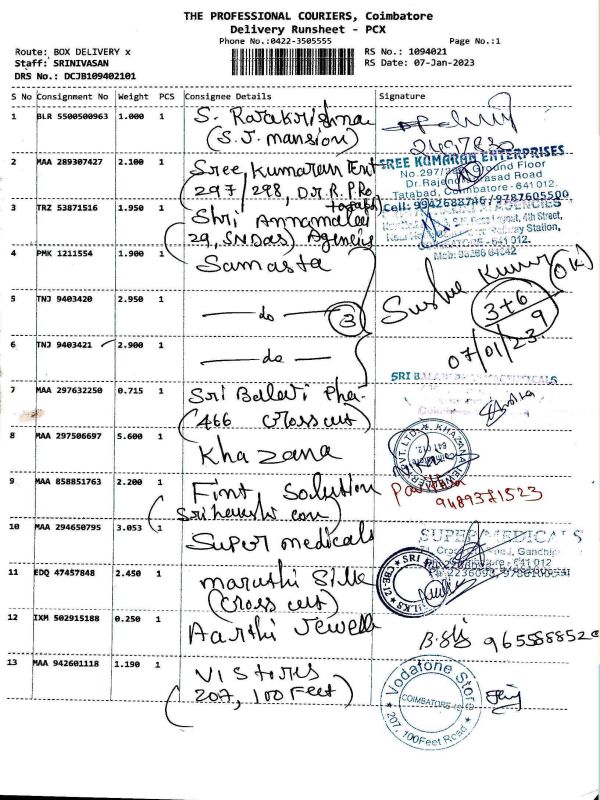 THE PROFESSIONAL COURIERS, Coimbatore
Delivery Runsheet - PCX
Phone No.:0422-3505555 Page No.:1
Route: BOX DELIVERY x RS No.: 1094021
Staff: SRINIVASAN RS Date: 07-Jan-2023
DRS No.: DCJB109402101
S No Consignment No Weight PCS Consignee Details Signature
1 BLR 5500500963 1.000 1 S. Rajakrishna
(S.J. mansion)
2497830
2 MAA 289307427 2.100 1 Sree Kumaran Ent
(297/298, D.r.R.P.Ro
SREE KUMARAN ENTERPRISES
No.297/298, Ground Floor
Dr.Rajendra Prasad Road
Tatabad, Coimbatore - 641 012.
Cell: 9942688746 / 9787605500
3 TRZ 53871516 1.950 1 Shri Annamalai
(29, SNDAS) Agencies
AGENCIES
Layout, 4th Street,
Railway Station,
COIMBATORE - 641 012.
4 PMK 1211554 1.900 1 Samasta
Sushil Kumar (OK)
5 TNJ 9403420 2.950 1 — do — 3
3+6
9
6 TNJ 9403421 2.900 1 — do —
07/01/23
7 MAA 297632250 0.715 1 Sri Balaji Pha-
(466 cross cut)
SRI BALAJI
8 MAA 297506697 5.600 1 Khazana
KHAZANA
641 012.
9 MAA 858851763 2.200 1 Fint Solution
9489381523
10 MAA 294650795 3.053 1 Super medicals
SUPER MEDICALS
11 EDQ 47457848 2.450 1 Maruthi Silk
(Cross cut)
SRI
SILKS
CBE-12
12 IXM 502915188 0.250 1 Aarthi Jewell
9655888520
13 MAA 942601118 1.190 1 VI Stores
(207, 100 Feet)
Vodafone Store
COIMBATORE-12
207, 100Feet Road